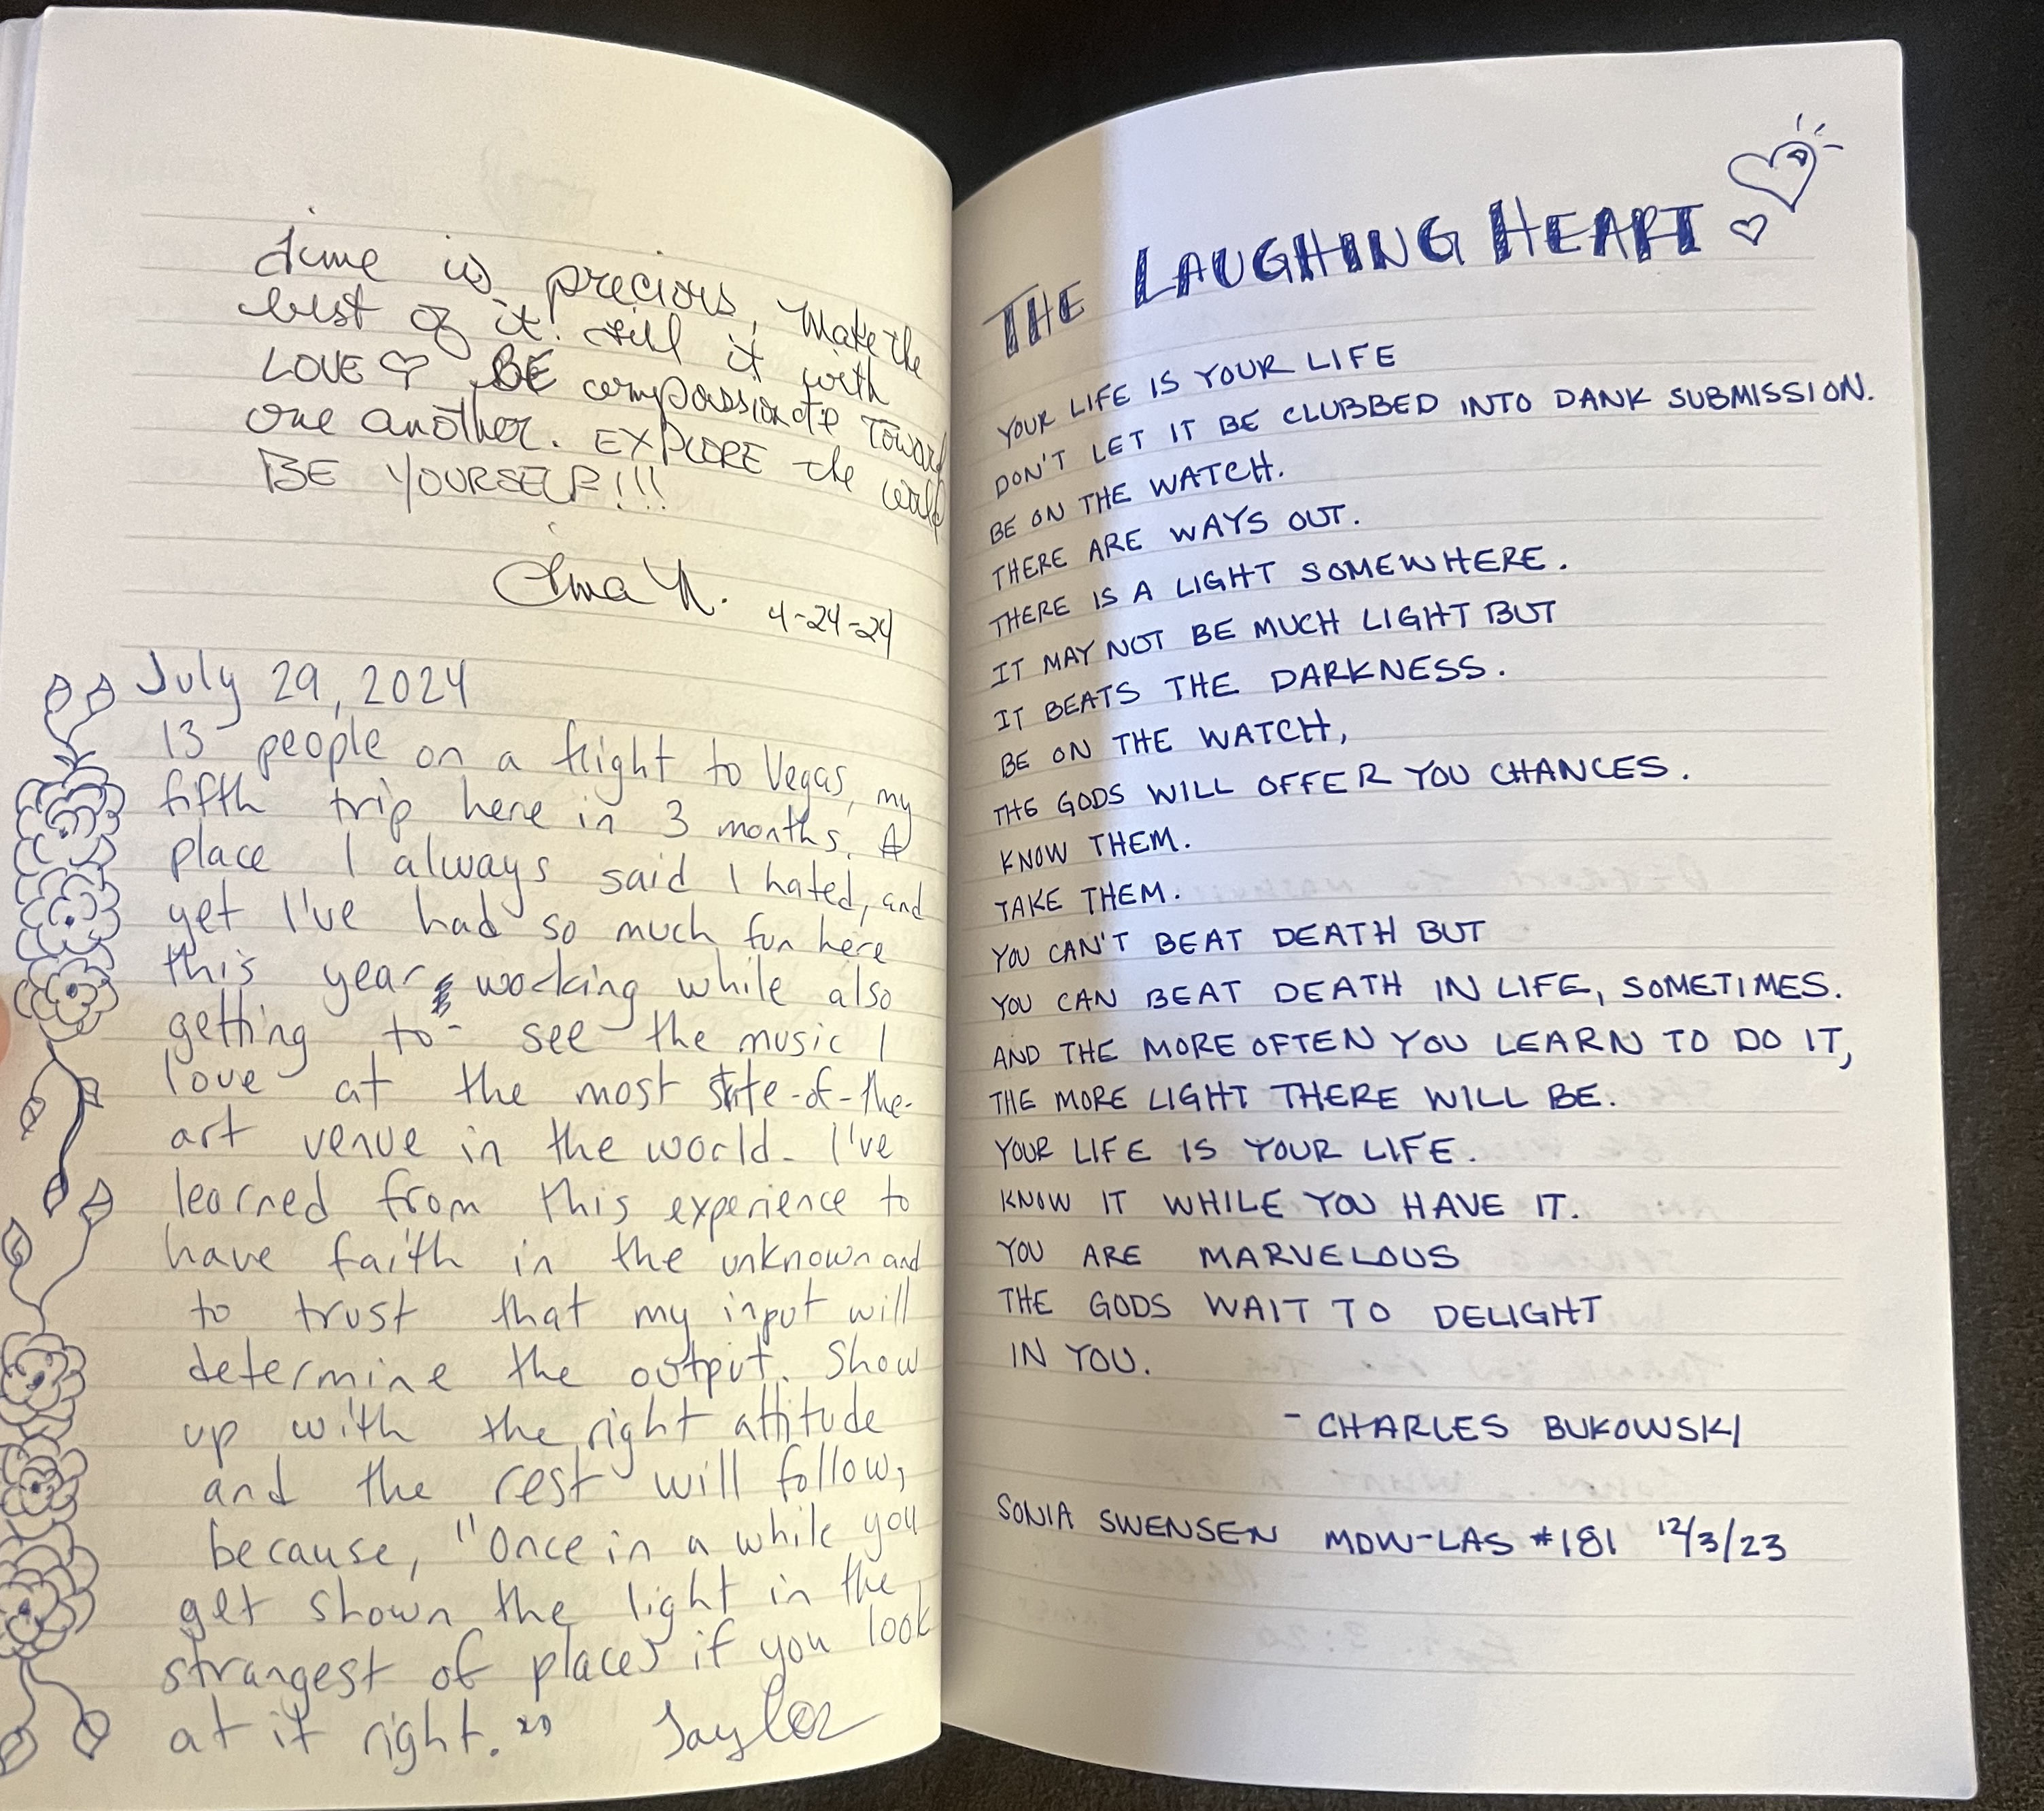 Time is precious, Make the
best of it! Fill it with
LOVE BE compassionate Toward
one another. EXPLORE the world
BE YOURSELF!!!
4-24-24
July 29, 2024
13 people on a flight to Vegas, my
fifth trip here in 3 months. A
place I always said I hated, and
yet I've had so much fun here
this year working while also
getting to see the music I
love at the most state-of-the-
art venue in the world. I've
learned from this experience to
have faith in the unknown and
to trust that my input will
determine the output. Show
up with the right attitude
and the rest will follow,
because, "Once in a while you
get shown the light in the
strangest of places if you look
at it right." Taylor
THE LAUGHING HEART
YOUR LIFE IS YOUR LIFE
DON'T LET IT BE CLUBBED INTO DANK SUBMISSION.
BE ON THE WATCH.
THERE ARE WAYS OUT.
THERE IS A LIGHT SOMEWHERE.
IT MAY NOT BE MUCH LIGHT BUT
IT BEATS THE DARKNESS.
BE ON THE WATCH,
THE GODS WILL OFFER YOU CHANCES.
KNOW THEM.
TAKE THEM.
YOU CAN'T BEAT DEATH BUT
YOU CAN BEAT DEATH IN LIFE, SOMETIMES.
AND THE MORE OFTEN YOU LEARN TO DO IT,
THE MORE LIGHT THERE WILL BE.
YOUR LIFE IS YOUR LIFE.
KNOW IT WHILE YOU HAVE IT.
YOU ARE MARVELOUS
THE GODS WAIT TO DELIGHT
IN YOU.
- CHARLES BUKOWSKI
SONIA SWENSEN MDW-LAS #181 12/3/23